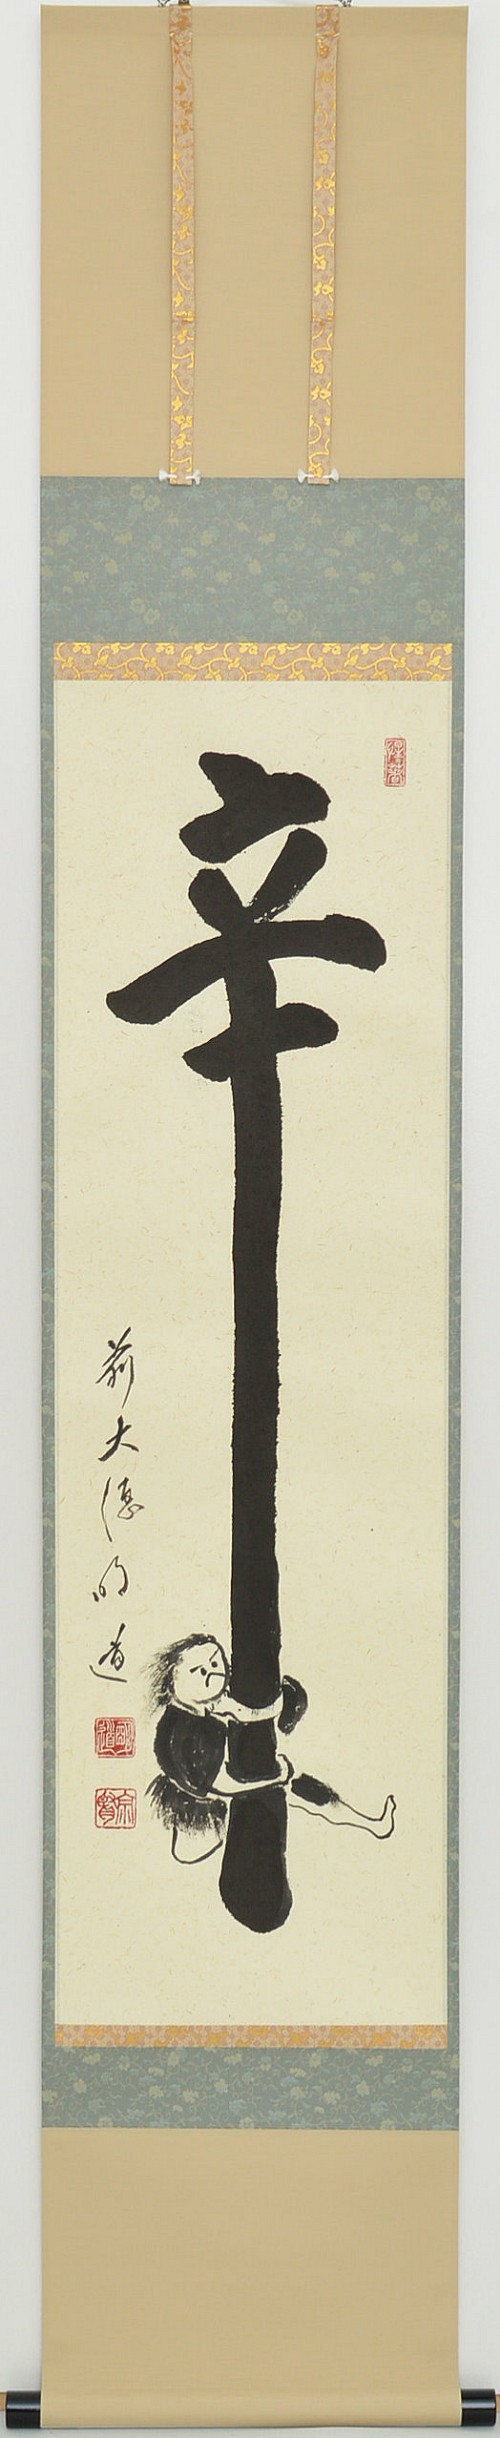 辛
前大徳明道